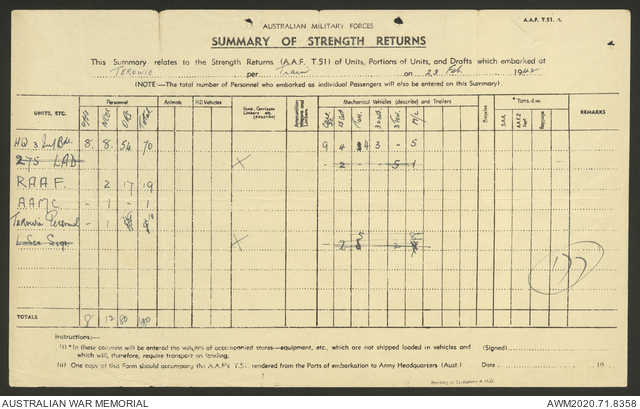 AUSTRALIAN MILITARY FORCES
A.A.F. T.51. A.
SUMMARY OF STRENGTH RETURNS
This Summary relates to the Strength Returns (A.A.F. T.51) of Units, Portions of Units, and Drafts which embarked at
TEROWIE per Train on 23 Feb 1942
(NOTE:—The total number of Personnel who embarked as individual Passengers will also be entered on this Summary)
UNITS, ETC. Personnel Animals H.D. Vehicles Guns, Carriages Limbers etc. (describe) Ammunition Wagons and Limbers Mechanical Vehicles (describe) and Trailers Bicycles *Tons d.w. REMARKS
Offs NCOs ORs Total 3 Ton M/C S.A.A. Baggage
HQ 3 Inf Bde. 8 8 54 70 9 4 4 3 - 5
275 LAD X - 2 - 5 1
RAAF. 2 17 19
AAMC - 1 - 1
Terowie Personnel - 1 9 10
L Sec Sigs X - 2 2
177
TOTALS 8 12 80 100
Instructions:—
(i) * In these columns will be entered the weights of accompanied stores—equipment, etc., which are not shipped loaded in vehicles and
which will, therefore, require transport on landing.
(Signed)
(ii) One copy of this Form should accompany the A.A.F's T.51. rendered from the Ports of embarkation to Army Headquarters (Aust.)
Date 19
AUSTRALIAN WAR MEMORIAL
AWM2020.71.8358